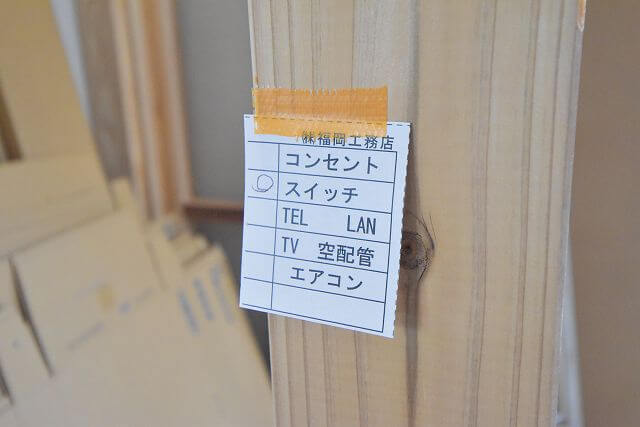 ㈱福岡工務店
コンセント
スイッチ
TEL LAN
TV 空配管
エアコン